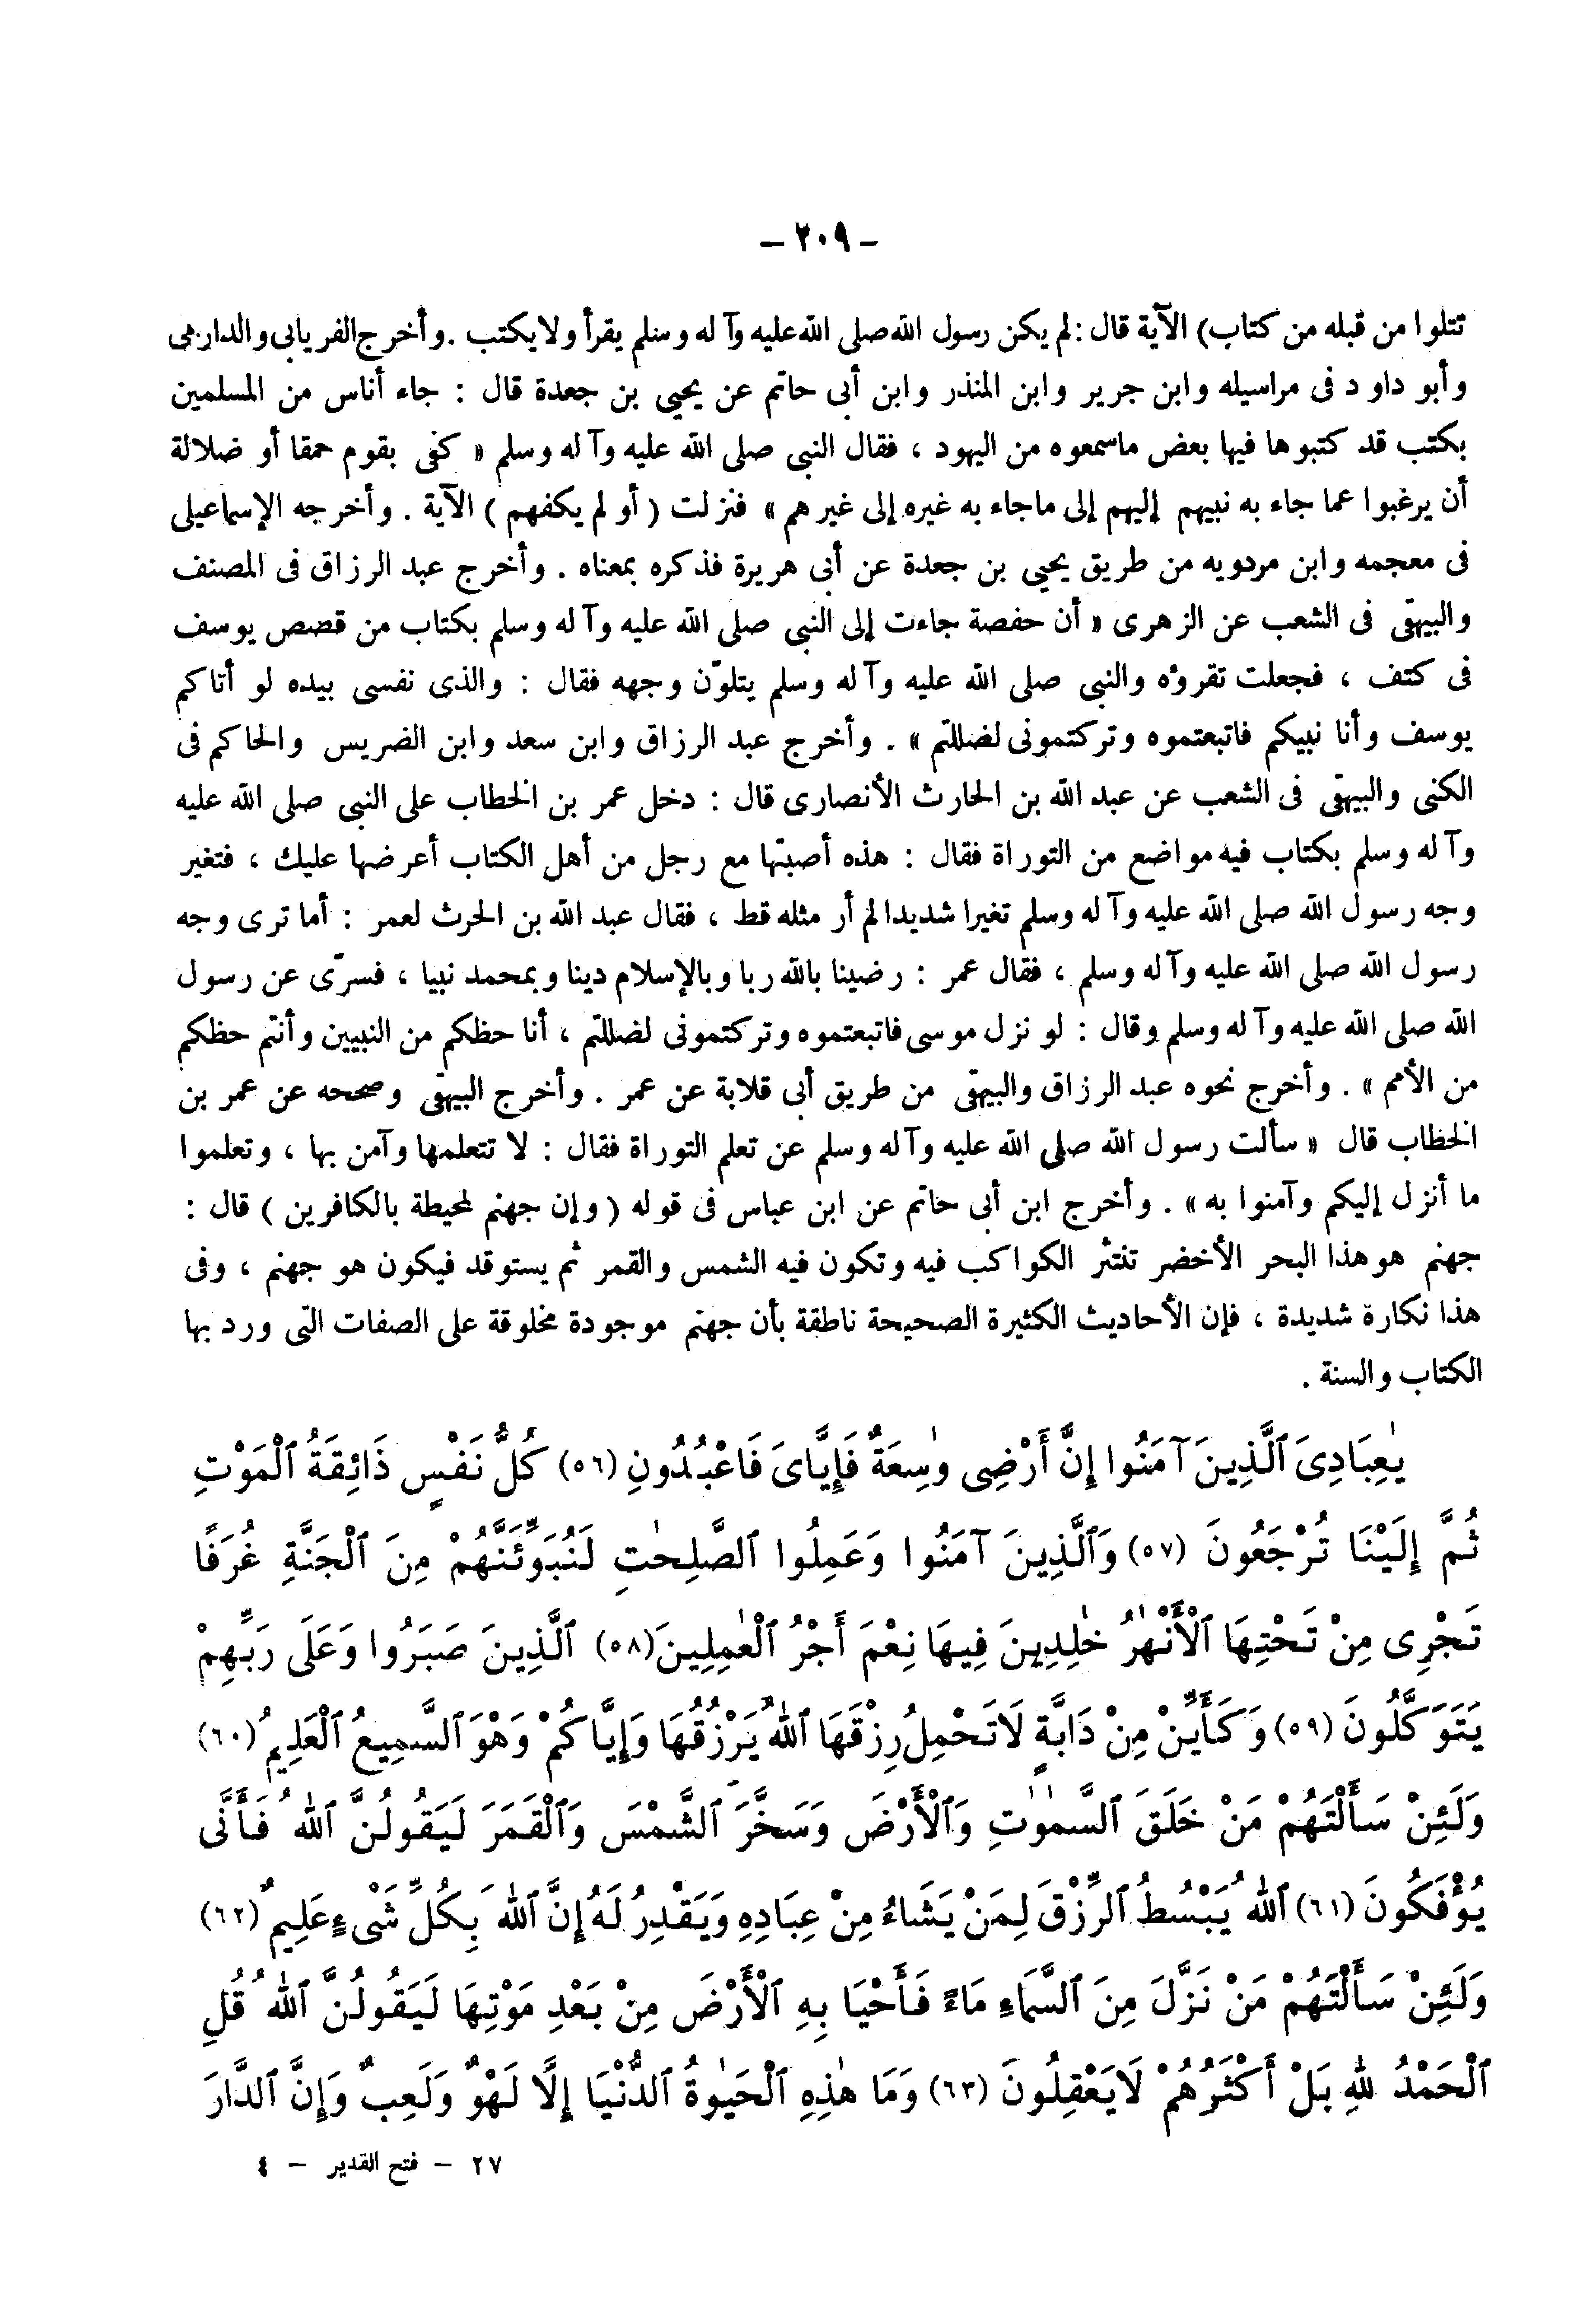 - ٢٠٩ -
تتلوا من قبله من كتاب) الآية قال : لم يكن رسول الله صلى الله عليه وآله وسلم يقرأ ولا يكتب . وأخرج الفريابى والدارمى
وأبو داود فى مراسيله وابن جرير وابن المنذر وابن أبى حاتم عن يحيى بن جعدة قال : جاء أناس من المسلمين
بكتب قد كتبوها فيها بعض ماسمعوه من اليهود ، فقال النبى صلى الله عليه وآله وسلم « كفى بقوم حمقا أو ضلالة
أن يرغبوا عما جاء به نبيهم إليهم إلى ماجاء به غيره إلى غيرهم » فنزلت ( أو لم يكفهم ) الآية . وأخرجه الإسماعيلى
فى معجمه وابن مردويه من طريق يحيى بن جعدة عن أبى هريرة فذكره بمعناه . وأخرج عبد الرزاق فى المصنف
والبيهقى فى الشعب عن الزهرى « أن حفصة جاءت إلى النبى صلى الله عليه وآله وسلم بكتاب من قصص يوسف
فى كتف ، فجعلت تقرؤه والنبى صلى الله عليه وآله وسلم يتلوّن وجهه فقال : والذى نفسى بيده لو أتاكم
يوسف وأنا نبيكم فاتبعتموه وتركتمونى لضللتم » . وأخرج عبد الرزاق وابن سعد وابن الضريس والحاكم فى
الكنى والبيهقى فى الشعب عن عبد الله بن الحارث الأنصارى قال : دخل عمر بن الخطاب على النبى صلى الله عليه
وآله وسلم بكتاب فيه مواضع من التوراة فقال : هذه أصبتها مع رجل من أهل الكتاب أعرضها عليك ، فتغير
وجه رسول الله صلى الله عليه وآله وسلم تغيرا شديدا لم أر مثله قط ، فقال عبد الله بن الحرث لعمر : أما ترى وجه
رسول الله صلى الله عليه وآله وسلم ، فقال عمر : رضينا بالله ربا وبالإسلام دينا وبمحمد نبيا ، فسرّى عن رسول
الله صلى الله عليه وآله وسلم وقال : لو نزل موسى فاتبعتموه وتركتمونى لضللتم ، أنا حظكم من النبيين وأنتم حظكم
من الأمم » . وأخرج نحوه عبد الرزاق والبيهقى من طريق أبى قلابة عن عمر . وأخرج البيهقى وصححه عن عمر بن
الخطاب قال « سألت رسول الله صلى الله عليه وآله وسلم عن تعلم التوراة فقال : لا تتعلمها وآمن بها ، وتعلموا
ما أنزل إليكم وآمنوا به » . وأخرج ابن أبى حاتم عن ابن عباس فى قوله ( وإن جهنم لمحيطة بالكافرين ) قال :
جهنم هو هذا البحر الأخضر تنتثر الكواكب فيه وتكون فيه الشمس والقمر ثم يستوقد فيكون هو جهنم ، وفى
هذا نكارة شديدة ، فإن الأحاديث الكثيرة الصحيحة ناطقة بأن جهنم موجودة مخلوقة على الصفات التى ورد بها
الكتاب والسنة .
يٰعِبَادِىَ ٱلَّذِينَ آمَنُوا إِنَّ أَرْضِى وٰسِعَةٌ فَإِيَّاىَ فَاعْبُدُونِ (٥٦) كُلُّ نَفْسٍ ذَائِقَةُ ٱلْمَوْتِ
ثُمَّ إِلَيْنَا تُرْجَعُونَ (٥٧) وَٱلَّذِينَ آمَنُوا وَعَمِلُوا ٱلصَّلِحٰتِ لَنُبَوِّئَنَّهُمْ مِنَ ٱلْجَنَّةِ غُرَفًا
تَجْرِى مِنْ تَحْتِهَا ٱلْأَنْهٰرُ خٰلِدِينَ فِيهَا نِعْمَ أَجْرُ ٱلْعٰمِلِينَ (٥٨) ٱلَّذِينَ صَبَرُوا وَعَلَى رَبِّهِمْ
يَتَوَكَّلُونَ (٥٩) وَكَأَيِّنْ مِنْ دَابَّةٍ لَا تَحْمِلُ رِزْقَهَا ٱللهُ يَرْزُقُهَا وَإِيَّاكُمْ وَهْوَ ٱلسَّمِيعُ ٱلْعَلِيمُ (٦٠)
وَلَئِنْ سَأَلْتَهُمْ مَنْ خَلَقَ ٱلسَّمٰوٰتِ وَٱلْأَرْضَ وَسَخَّرَ ٱلشَّمْسَ وَٱلْقَمَرَ لَيَقُولُنَّ ٱللهُ فَأَنَّى
يُؤْفَكُونَ (٦١) ٱللهُ يَبْسُطُ ٱلرِّزْقَ لِمَنْ يَشَاءُ مِنْ عِبَادِهِ وَيَقْدِرُ لَهُ إِنَّ ٱللهَ بِكُلِّ شَىْءٍ عَلِيمٌ (٦٢)
وَلَئِنْ سَأَلْتَهُمْ مَنْ نَزَّلَ مِنَ ٱلسَّمَاءِ مَاءً فَأَحْيَا بِهِ ٱلْأَرْضَ مِنْ بَعْدِ مَوْتِهَا لَيَقُولُنَّ ٱللهُ قُلِ
ٱلْحَمْدُ لِلهِ بَلْ أَكْثَرُهُمْ لَا يَعْقِلُونَ (٦٣) وَمَا هٰذِهِ ٱلْحَيٰوةُ ٱلدُّنْيَا إِلَّا لَهْوٌ وَلَعِبٌ وَإِنَّ ٱلدَّارَ
٢٧ - فتح القدير - ٤